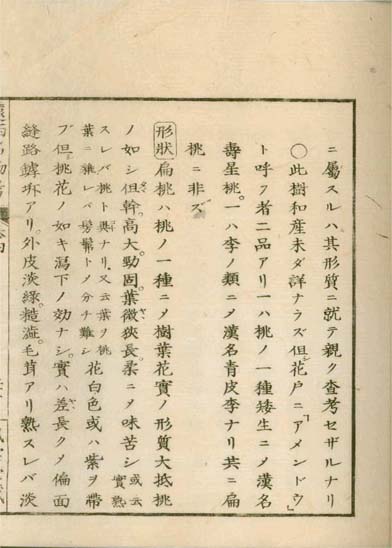 ニ屬スルハ其形質ニ就テ親ク査考セザルナリ
〇此樹和産未ダ詳ナラズ但花戸ニ「アメンドウ」
ト呼フ者二品アリ一ハ桃ノ一種矮生ニメ漢名
壽星桃一ハ李ノ類ニメ漢名青皮李ナリ共ニ扁
桃ニ非ズ
形狀 扁桃ハ桃ノ一種ニメ樹葉花實ノ形質大抵桃
ノ如シ但幹高大勁固葉微狹長柔ニメ味苦シ 或云實熟
スレバ桃ト異ナリ又云葉ヲ桃葉ニ雜レバ髣髴トメ分チ難シ 花白色或ハ紫ヲ帶
ブ但桃花ノ如キ瀉下ノ効ナシ實ハ差長クメ偏面
縫路罅坼アリ外皮淡綠糙澁毛茸アリ熟スレバ淡